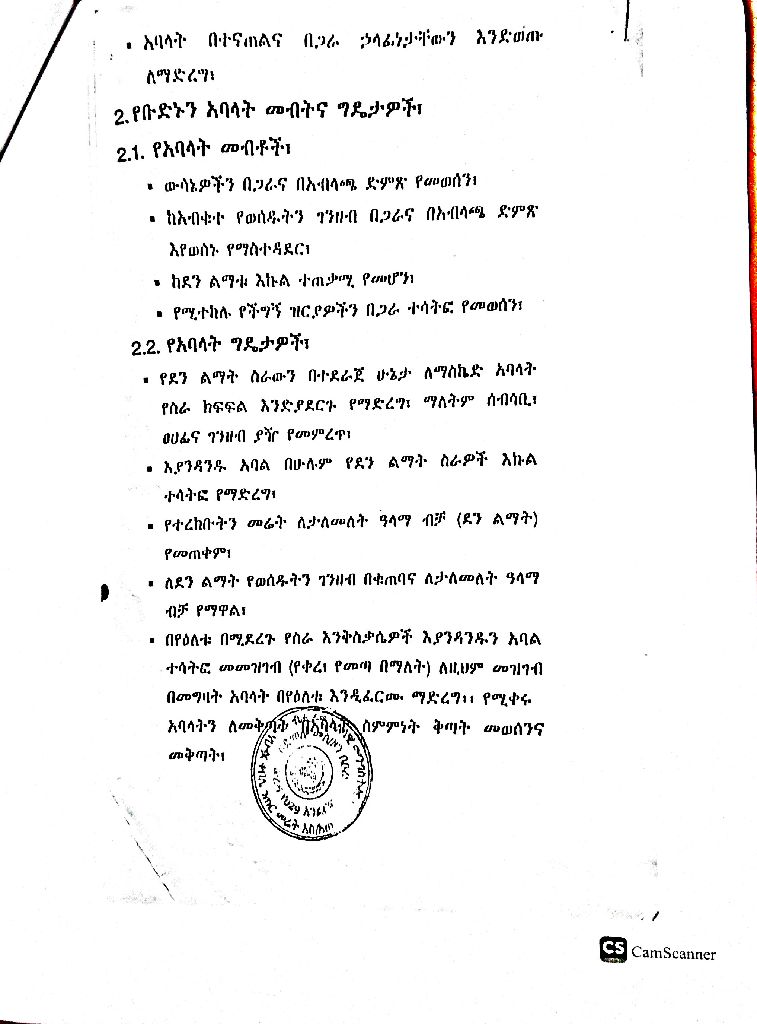 ▪ አባላት በተናጠልና በጋራ ኃላፊነታቸውን እንድወጡ
ለማድረግ፣
2. የቡድኑን አባላት መብትና ግዴታዎች፣
2.1. የአባላት መብቶች፣
▪ ውሳኔዎችን በጋራና በአብላጫ ድምጽ የመወሰን፣
▪ ከአብቁተ የወሰዱትን ገንዘብ በጋራና በአብላጫ ድምጽ
እየወሰኑ የማስተዳደር፣
▪ ከደን ልማቱ እኩል ተጠቃሚ የመሆን፣
▪ የሚተከሉ የችግኝ ዝርያዎችን በጋራ ተሳትፎ የመወሰን፣
2.2. የአባላት ግዴታዎች፣
▪ የደን ልማት ስራውን በተደራጀ ሁኔታ ለማስኬድ አባላት
የስራ ክፍፍል እንድያደርጉ የማድረግ፣ ማለትም ሰብሳቢ፣
ፀሀፊና ገንዘብ ያዥ የመምረጥ፣
▪ እያንዳንዱ አባል በሁሉም የደን ልማት ስራዎች እኩል
ተሳትፎ የማድረግ፣
▪ የተረከቡትን መሬት ለታለመለት ዓላማ ብቻ (ደን ልማት)
የመጠቀም፣
▪ ለደን ልማት የወሰዱትን ገንዘብ በቁጠባና ለታለመለት ዓላማ
ብቻ የማዋል፣
▪ በየዕለቱ በሚደረጉ የስራ እንቅስቃሴዎች እያንዳንዱን አባል
ተሳትፎ መመዝገብ (የቀረ፣ የመጣ በማለት) ለዚህም መዝገብ
በመግባት አባላት በየዕለቱ እንዲፈርሙ ማድረግ፣፣ የሚቀሩ
አባላትን ለመቅጣት በአባላቱ ስምምነት ቅጣት መወሰንና
መቅጣት፣
CS CamScanner